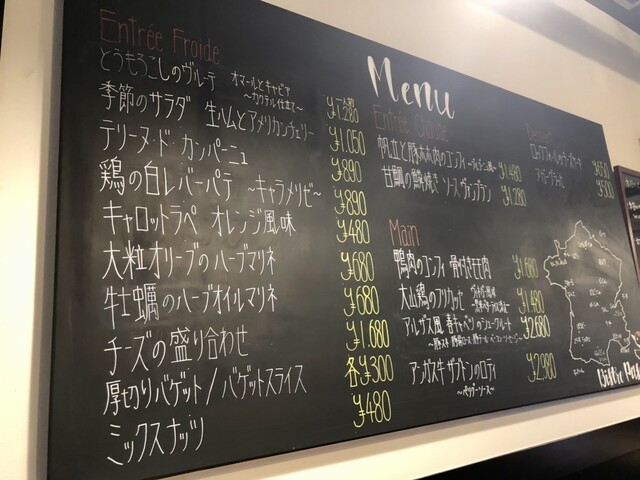 Menu
Entrée Froide
とうもろこしのヴルーテ オマールとキャビア
～カクテル仕立て～ 一人前 ¥1,280
季節のサラダ 生ハムとアメリカンチェリー ¥1,050
テリーヌ・ド・カンパーニュ ¥890
鶏の白レバーパテ ～キャラメリゼ～ ¥890
キャロットラペ オレンジ風味 ¥480
大粒オリーブのハーブマリネ ¥680
牡蠣のハーブオイルマリネ ¥680
チーズの盛り合わせ ¥1,680
厚切りバゲット/バゲットスライス 各¥300
ミックスナッツ ¥480
Entrée
帆立と豚ホホ肉のコンフィ ¥1,480
甘鯛の鱗焼き ソースヴァンブラン ¥1,280
Main
鴨肉のコンフィ 骨付きモモ肉 ¥1,680
大山鶏のフリカッセ ¥1,480
アルザス風 春キャベツのシュークルート ¥2,680
アンガス牛 ザブトンのロティ ¥2,980
～ペッパーソース～
¥650
¥500